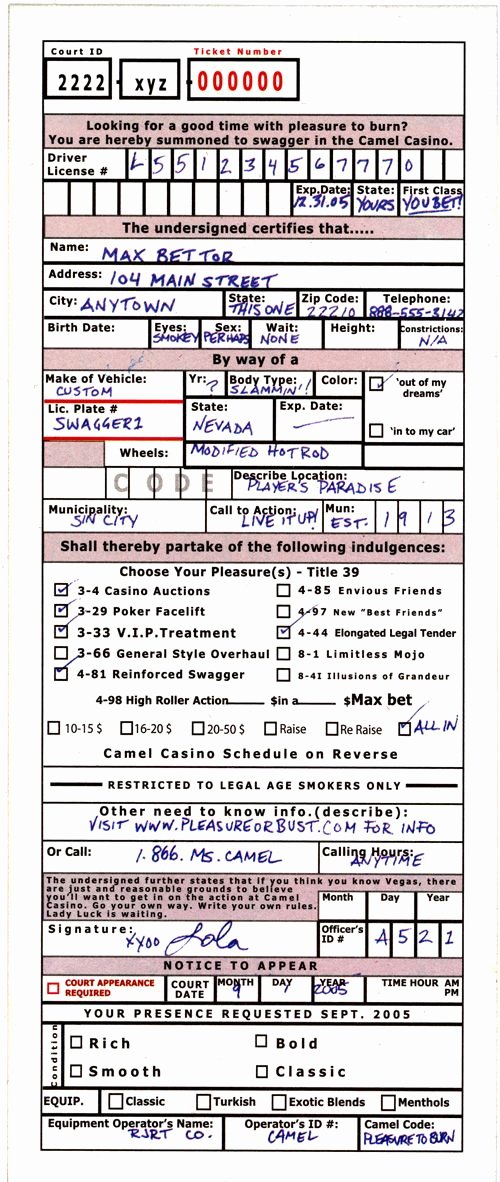 Court ID Ticket Number
2222 xyz 000000
Looking for a good time with pleasure to burn?
You are hereby summoned to swagger in the Camel Casino.
Driver License # L 5 5 1 2 3 4 5 6 7 7 7 0
Exp.Date: 12.31.05 State: YOURS First Class YOU BET!
The undersigned certifies that.....
Name: MAX BETTOR
Address: 104 MAIN STREET
City: ANYTOWN State: THIS ONE Zip Code: 22210 Telephone: 888-555-3142
Birth Date: Eyes: SMOKEY Sex: PERHAPS Wait: NONE Height: Constrictions: N/A
By way of a
Make of Vehicle: CUSTOM Yr: ? Body Type: SLAMMIN'! Color: 'out of my dreams'
Lic. Plate # SWAGGER1 State: NEVADA Exp. Date: 'in to my car'
Wheels: MODIFIED HOTROD
CODE Describe Location: PLAYER'S PARADISE
Municipality: SIN CITY Call to Action: LIVE IT UP! Mun: EST. 1 9 1 3
Shall thereby partake of the following indulgences:
Choose Your Pleasure(s) - Title 39
3-4 Casino Auctions 4-85 Envious Friends
3-29 Poker Facelift 4-97 New "Best Friends"
3-33 V.I.P.Treatment 4-44 Elongated Legal Tender
3-66 General Style Overhaul 8-1 Limitless Mojo
4-81 Reinforced Swagger 8-4I Illusions of Grandeur
4-98 High Roller Action $in a $Max bet
10-15 $ 16-20 $ 20-50 $ Raise Re Raise ALL IN
Camel Casino Schedule on Reverse
RESTRICTED TO LEGAL AGE SMOKERS ONLY
Other need to know info.(describe):
VISIT WWW.PLEASUREORBUST.COM FOR INFO
Or Call: 1.866.MS.CAMEL Calling Hours: ANYTIME
The undersigned further states that if you think you know Vegas, there
are just and reasonable grounds to believe
you'll want to get in on the action at Camel
Casino. Go your own way. Write your own rules.
Lady Luck is waiting.
Month Day Year
Signature: xxoo Lola Officer's ID # A 5 2 1
NOTICE TO APPEAR
COURT APPEARANCE REQUIRED COURT DATE MONTH 9 DAY 1 YEAR 2005 TIME HOUR AM PM
YOUR PRESENCE REQUESTED SEPT. 2005
Condition
Rich Bold
Smooth Classic
EQUIP. Classic Turkish Exotic Blends Menthols
Equipment Operator's Name: RJRT CO. Operator's ID #: CAMEL Camel Code: PLEASURE TO BURN